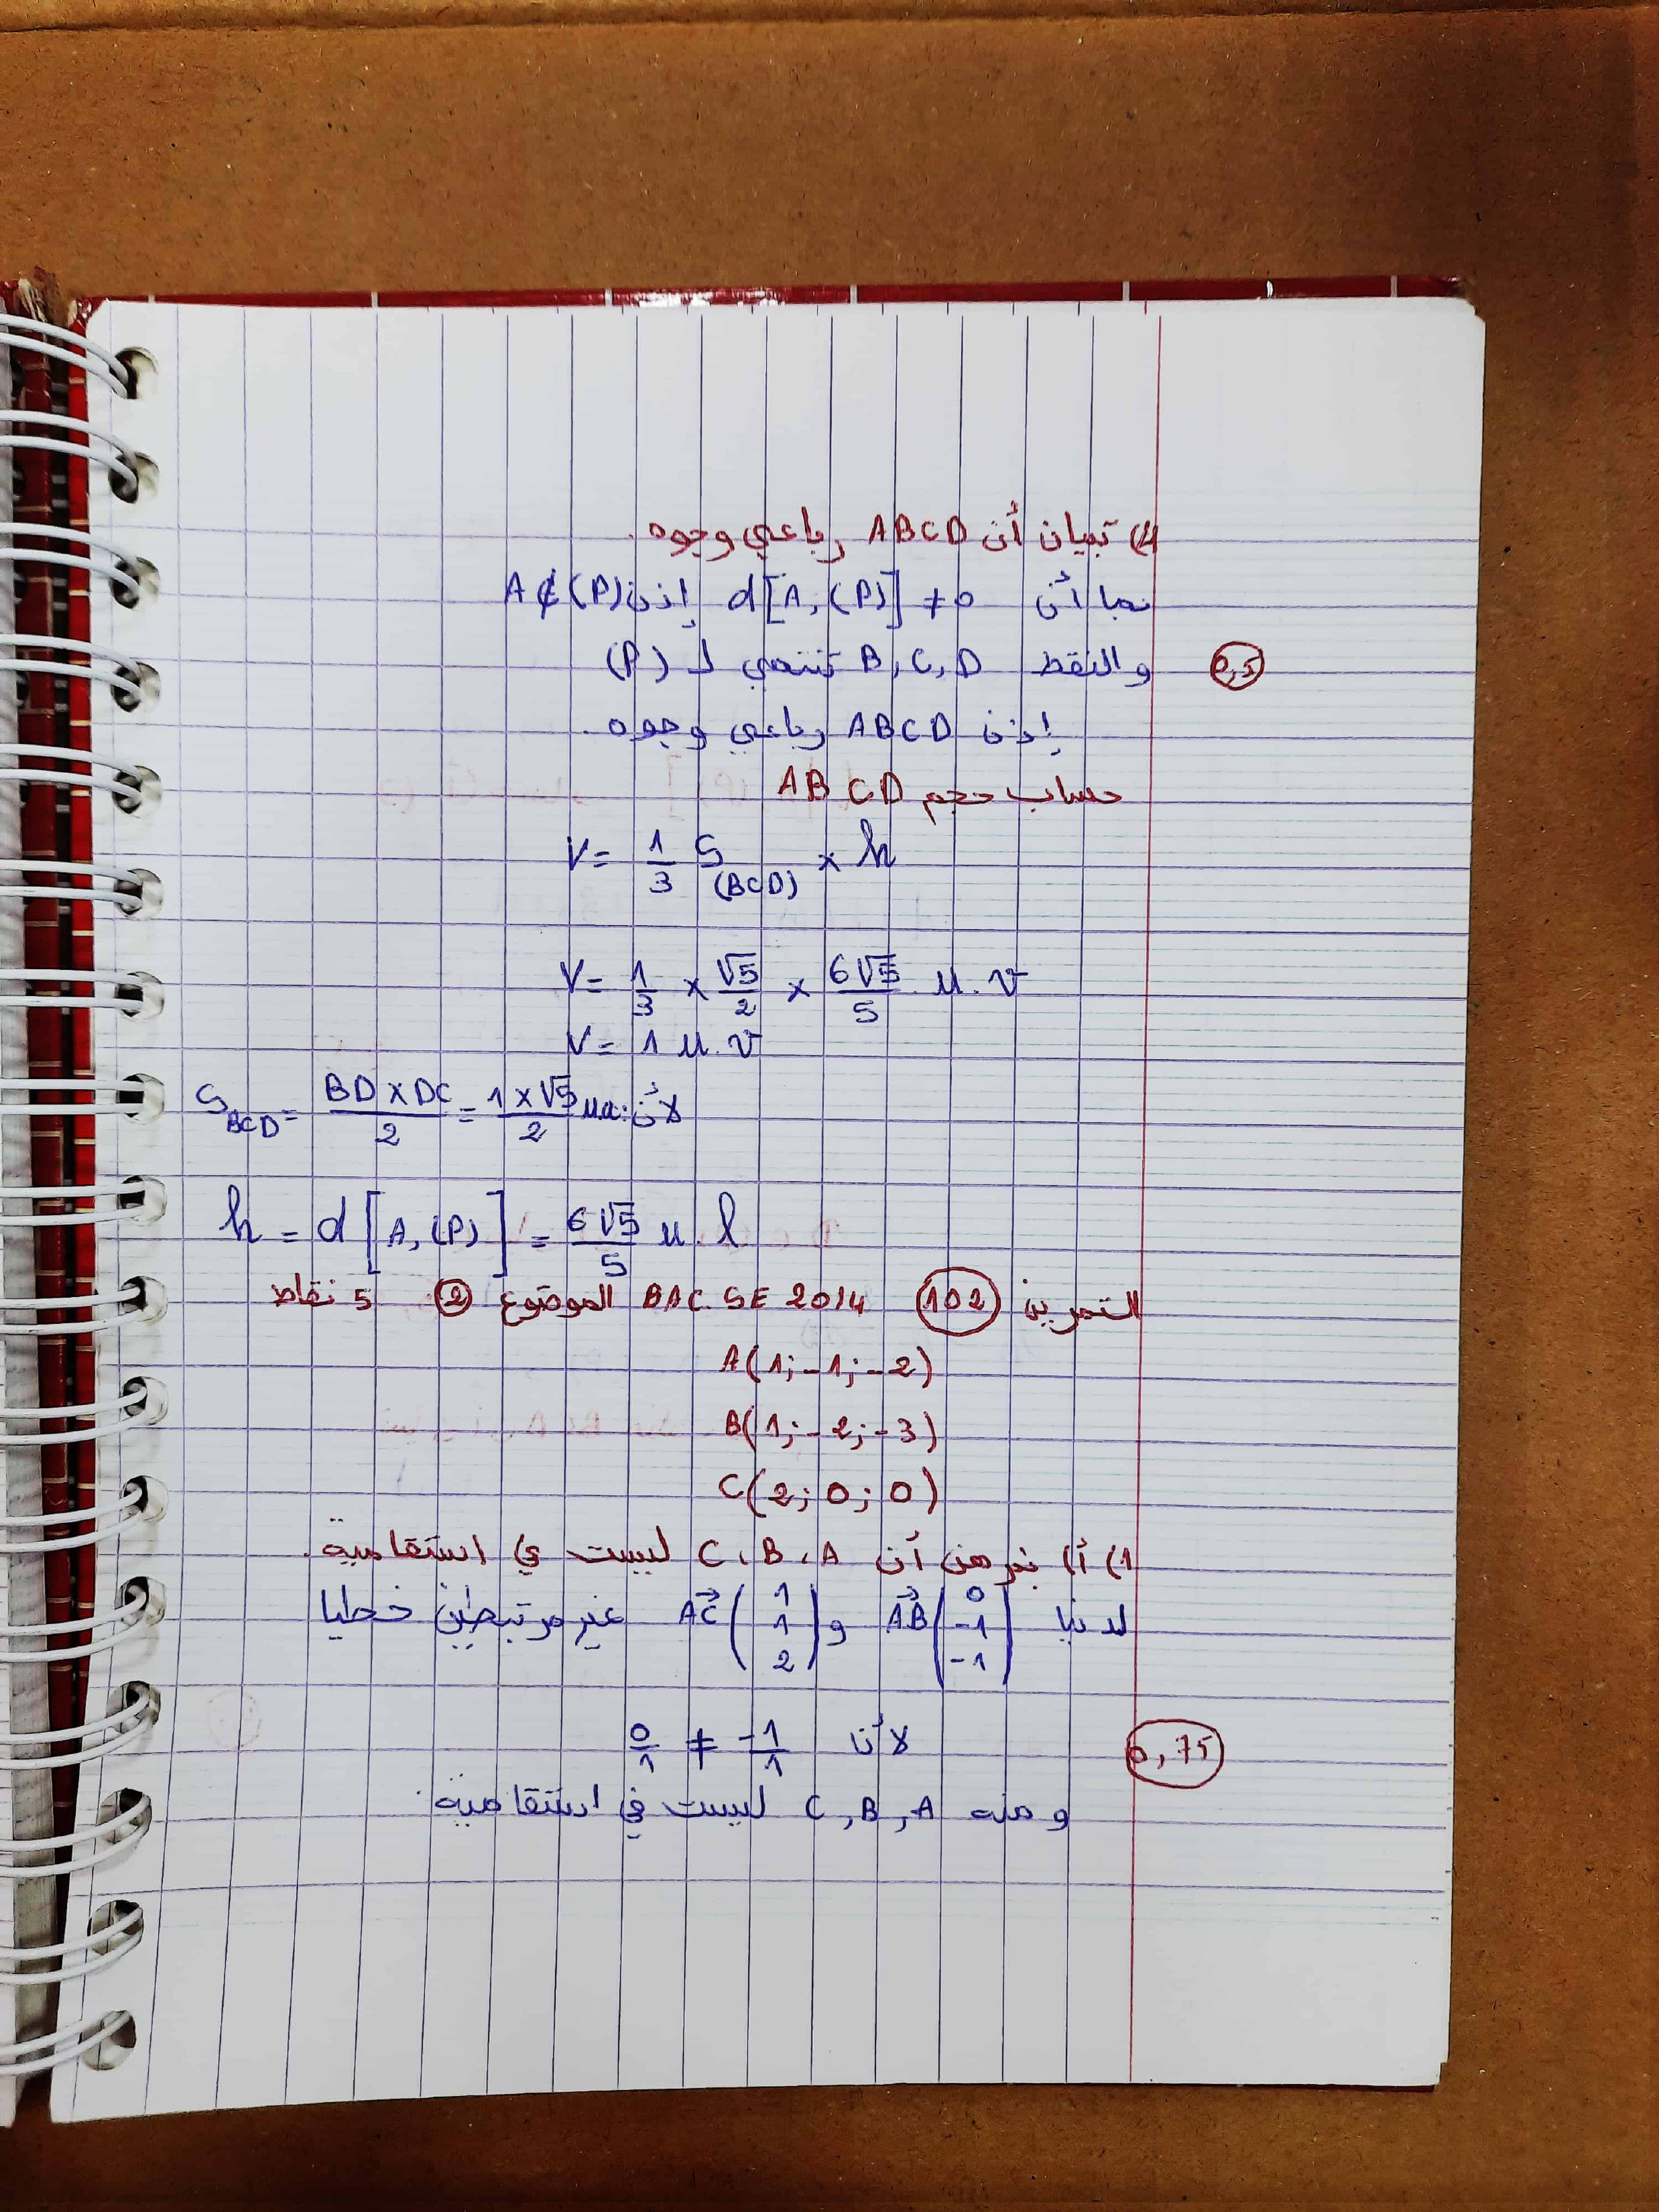 4) تبيان أن ABCD رباعي وجوه.
بما أن d[A,(P)] ≠ 0 إذن A∉(P)
والنقط B, C, D تنتمي لـ (P)
0,5
إذن ABCD رباعي وجوه.
حساب حجم ABCD
V = 1/3 S(BCD) × h
V = 1/3 × √5/2 × 6√5/5 u.v
V = 1 u.v
لأن: S_BCD = (BD×DC)/2 = (1×√5)/2 ua
h = d[A,(P)] = 6√5/5 u.l
التمرين (102) BAC SE 2014 الموضوع (2) 5 نقاط
A(1;-1;-2)
B(1;-2;-3)
C(2;0;0)
1) أ) نبرهن أن C، B، A ليست في استقامية.
لدينا AB→(0 -1 -1) و AC→(1 1 2) غير مرتبطين خطيا
لأن 0/1 ≠ -1/1
0,75
ومنه C, B, A ليست في استقامية.